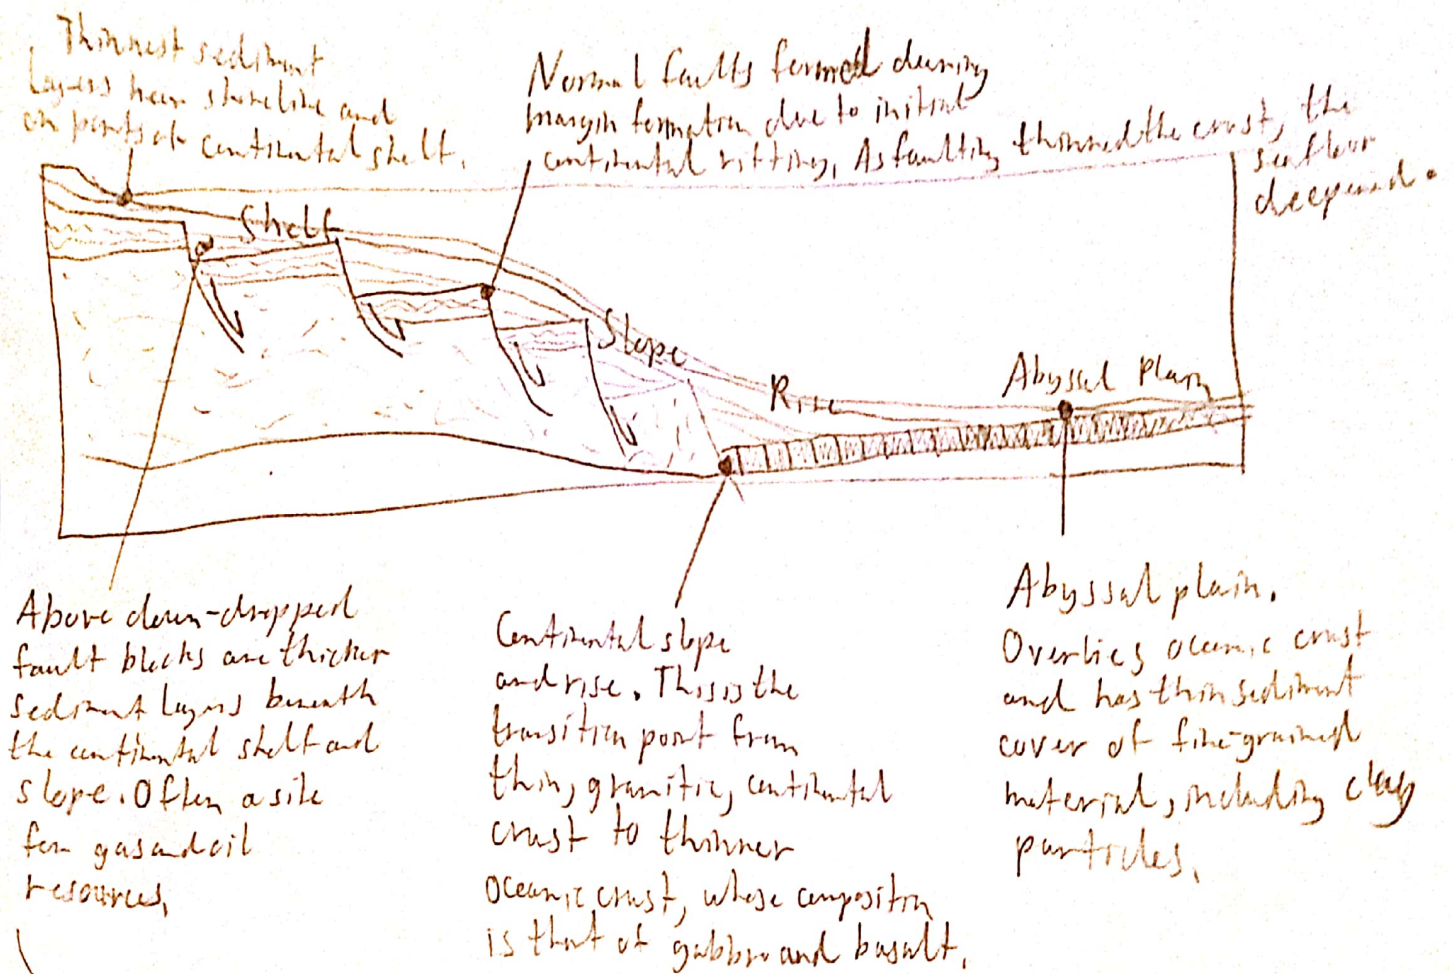 Thinnest sediment
layers near shoreline and
on parts of continental shelf.
Normal faults formed during
margin formation due to initial
continental rifting. As faulting thinned the crust, the
seafloor
deepened.
Shelf
Slope
Rise
Abyssal Plain
Above down-dropped
fault blocks are thicker
sediment layers beneath
the continental shelf and
slope. Often a site
for gas and oil
resources.
Continental slope
and rise. This is the
transition point from
thin, granitic, continental
crust to thinner
oceanic crust, whose composition
is that of gabbro and basalt.
Abyssal plain.
Overlies oceanic crust
and has thin sediment
cover of fine-grained
material, including clay
particles.